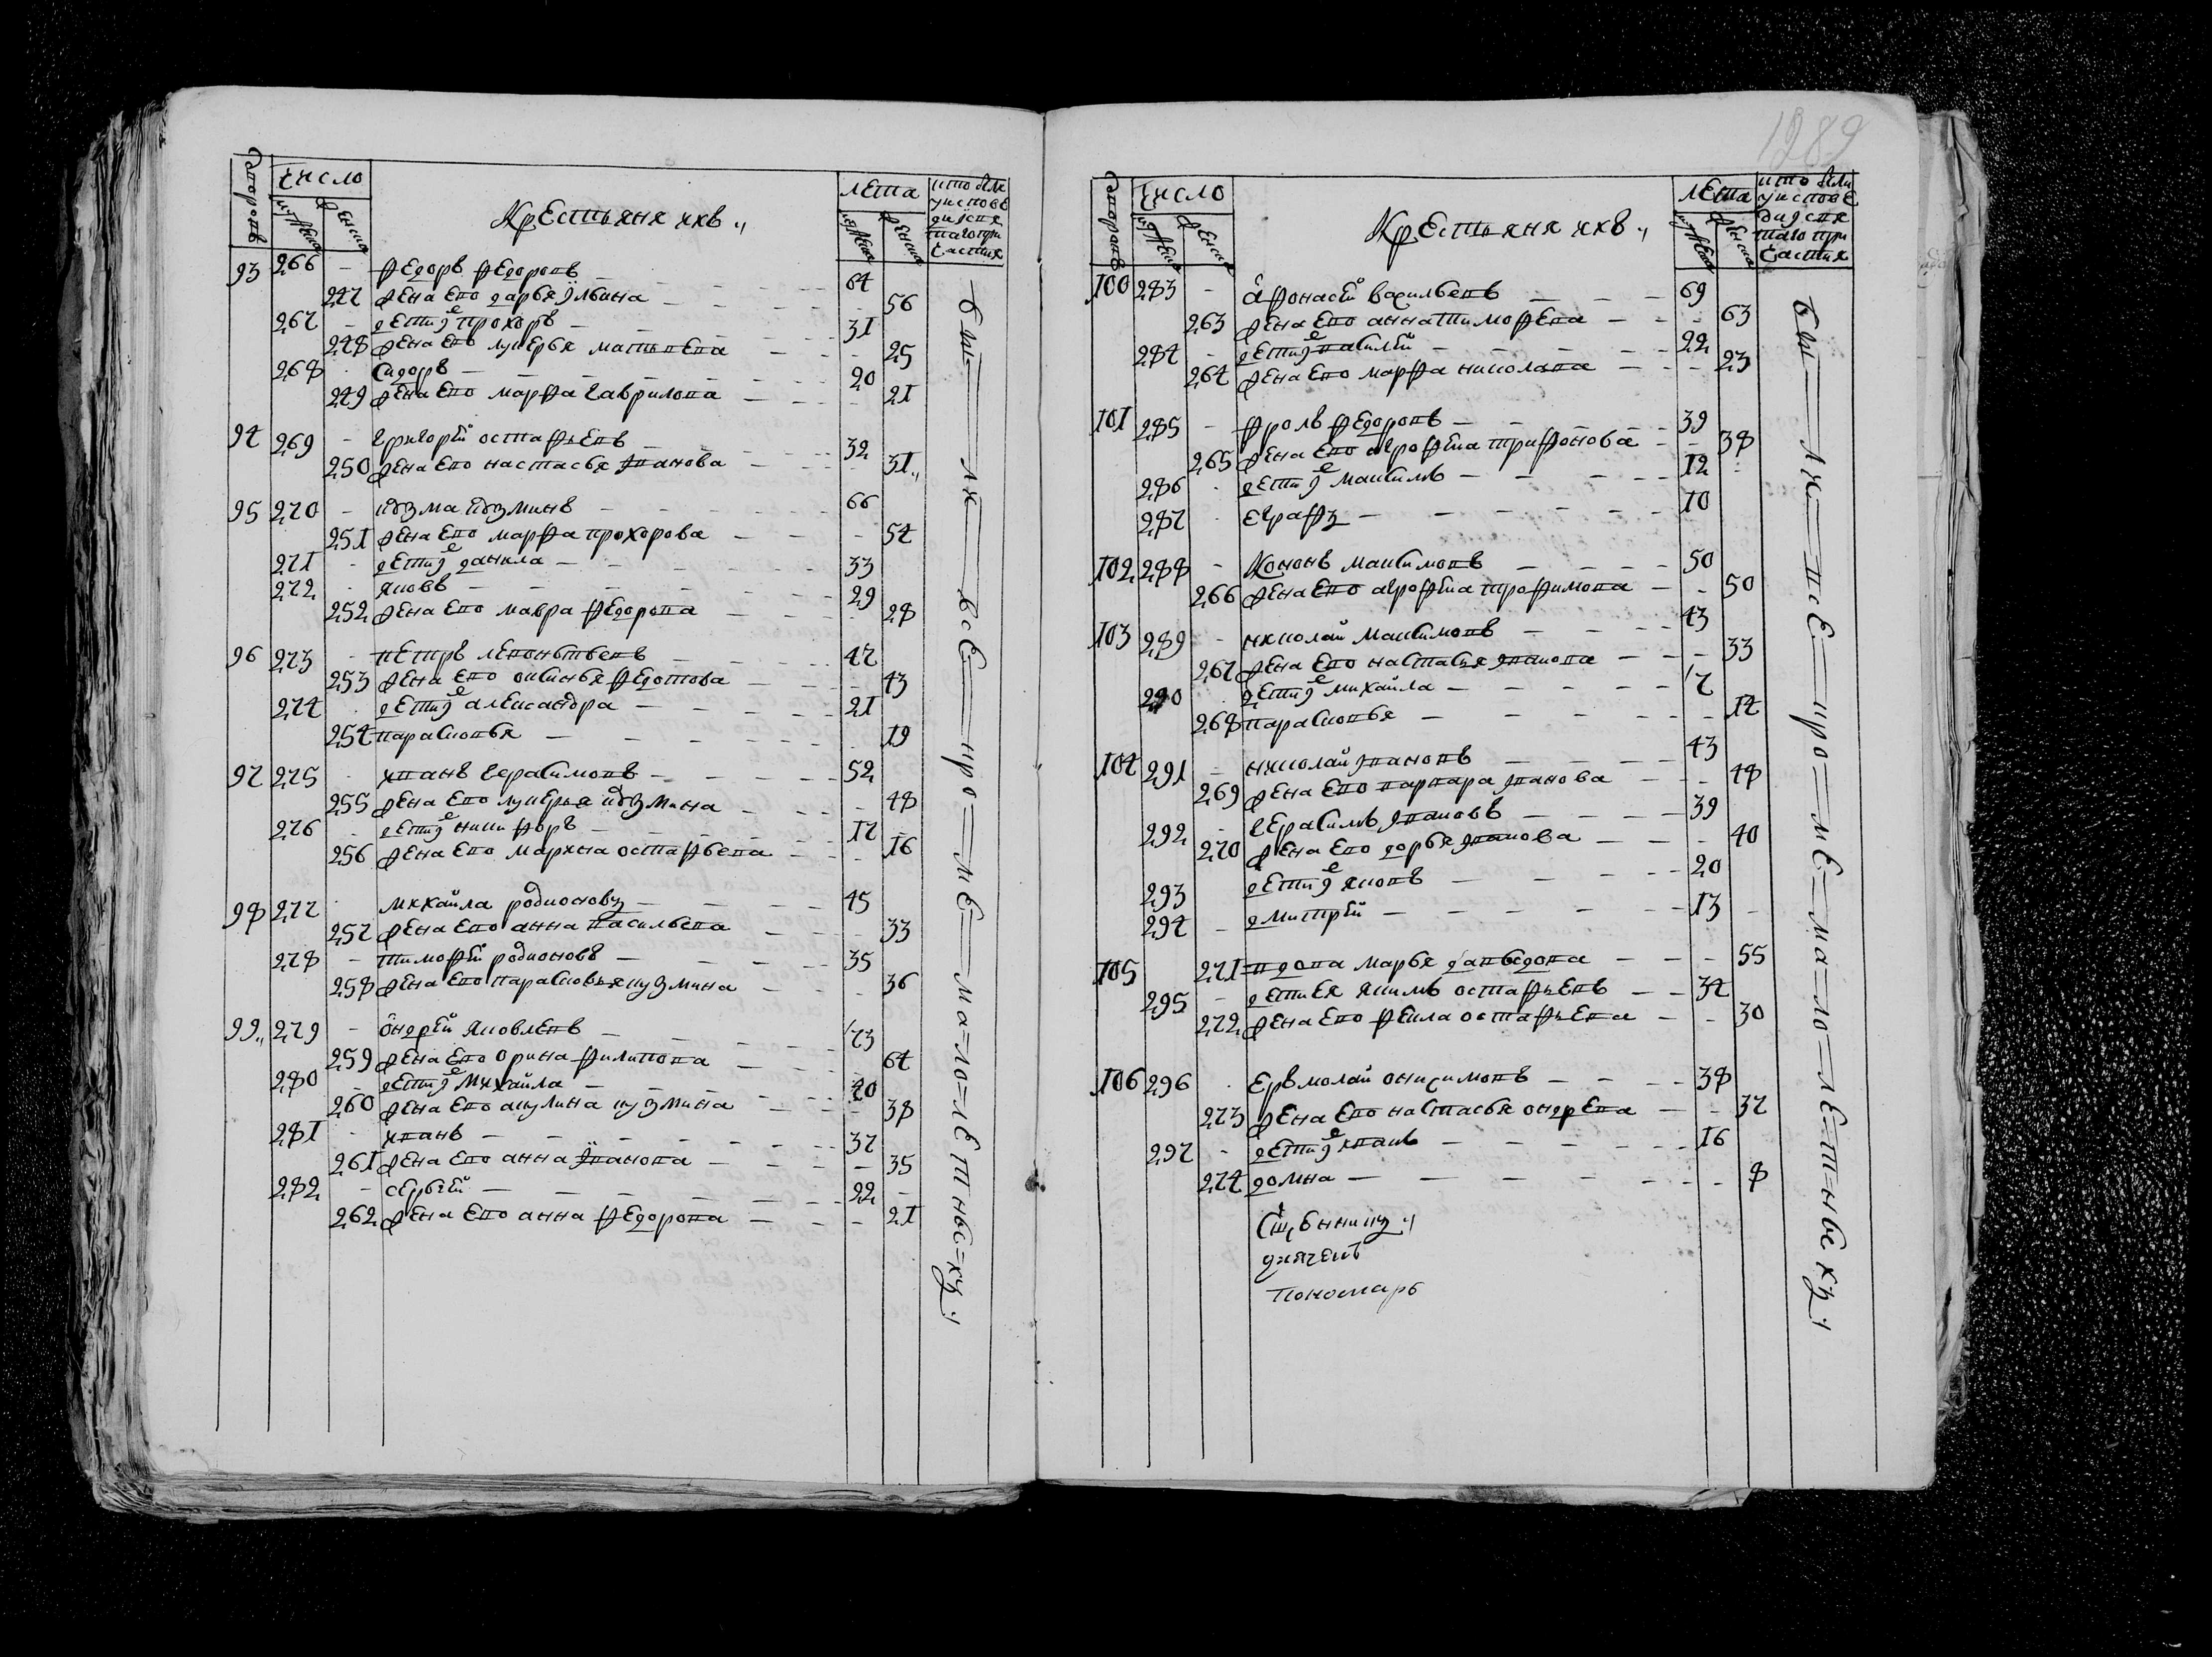 дворовъ
число
мужеска
женска
Крестьяня ихъ
лета
мужеска
женска
кто были
у исповеди
и святаго при
частия
93 266 - федоръ федоровъ - 64
247 жена ево дарья ильина - 56
267 - дети ево прохоръ - 31
248 жена ево лукерья матвеева - 25
268 сидоръ - 20
249 жена ево марфа гаврилова - 21
94 269 - григорей остафьевъ - 32
250 жена ево настасья иванова - 31
95 270 - кузма кузминъ - 66
251 жена ево марфа прохорова - 54
271 - дети ево данила - 33
272 яковъ - 29
252 жена ево мавра федорова - 28
96 273 - петръ леонтьевъ - 47
253 жена ево аксинья федотова - 43
274 дети ево александра - 21
254 парасковья - 19
97 275 иванъ герасимовъ - 52
255 жена ево лукерья кузмина - 48
276 - дети ево никифоръ - 17
256 жена ево марина остафьева - 16
98 277 михаила родионовъ - 45
257 жена ево анна васильева - 33
278 - тимофей родионовъ - 35
258 жена ево парасковья кузмина - 36
99 279 - ондрей яковлевъ - 73
259 жена ево орина филипова - 64
280 - дети ево михаила - 40
260 жена ево акулина кузмина - 38
281 - иванъ - 37
261 жена ево анна иванова - 35
282 - сергей - 22
262 жена ево анна федорова - 21
бы ли все кроме малолетныхъ
1289
дворовъ
число
мужеска
женска
Крестьяня ихъ
лета
мужеска
женска
кто были
у исповеди
и святаго при
частия
100 283 - афонасей васильевъ - 69
263 жена ево анна тимофеева - 63
284 - дети ево василей - 22
264 жена ево марфа николаева - 23
101 285 - фролъ федоровъ - 39
265 жена ево агрофена трифонова - 38
286 дети ево максимъ - 12
287 еграфъ - 10
102 288 - кононъ максимовъ - 50
266 жена ево агрофена трофимова - 50
103 289 - николай максимовъ - 43
267 жена ево настасья яковлева - 33
290 дети ево михаила - 17
268 парасковья - 14
104 291 - николай ивановъ - 43
269 жена ево варвара иванова - 48
292 - герасимъ ивановъ - 39
270 жена ево дарья иванова - 40
293 дети ево яковъ - 20
294 - дмитрей - 13
105 271 вдова марья давыдова - 55
295 - дети ея якимъ остафьевъ - 34
272 жена ево фекла остафьева - 30
106 296 ермолай онисимовъ - 38
273 жена ево настасья ондреева - 37
297 - дети ево иванъ - 16
274 домна - 8
Священникъ
дьячекъ
пономарь
бы ли все кроме малолетныхъ